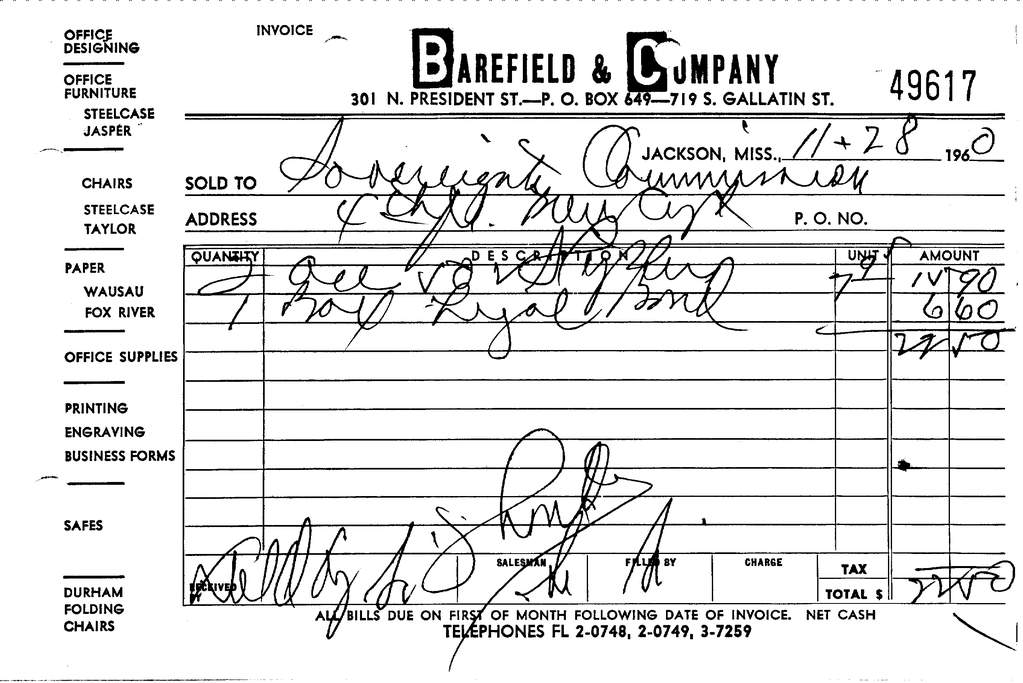 INVOICE
BAREFIELD & COMPANY
49617
301 N. PRESIDENT ST.—P. O. BOX 649—719 S. GALLATIN ST.
JACKSON, MISS., 11-28 1960
SOLD TO Sovereignty Commission
ADDRESS P. O. NO.
QUANTITY DESCRIPTION UNIT AMOUNT
2 Ace 15 90
1 Box Legal Bond 6 60
22 50
SALESMAN FILLED BY CHARGE TAX
RECEIVED BY TOTAL $ 22 50
ALL BILLS DUE ON FIRST OF MONTH FOLLOWING DATE OF INVOICE. NET CASH
TELEPHONES FL 2-0748, 2-0749, 3-7259
OFFICE
DESIGNING
OFFICE
FURNITURE
STEELCASE
JASPER
CHAIRS
STEELCASE
TAYLOR
PAPER
WAUSAU
FOX RIVER
OFFICE SUPPLIES
PRINTING
ENGRAVING
BUSINESS FORMS
SAFES
DURHAM
FOLDING
CHAIRS